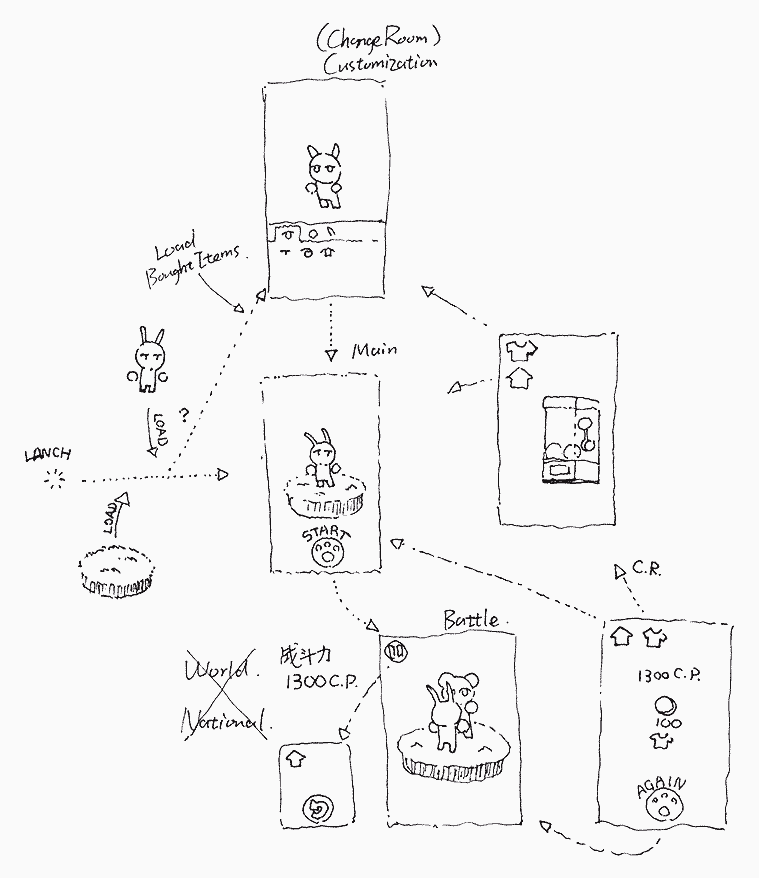 (ChangeRoom)
Customization
Load
Bought Items.
Main
?
LOAD
LANCH
LOAD
START
C.R.
Battle.
World.
National.
成斗力
1300 C.P.
1300 C.P.
100
AGAIN